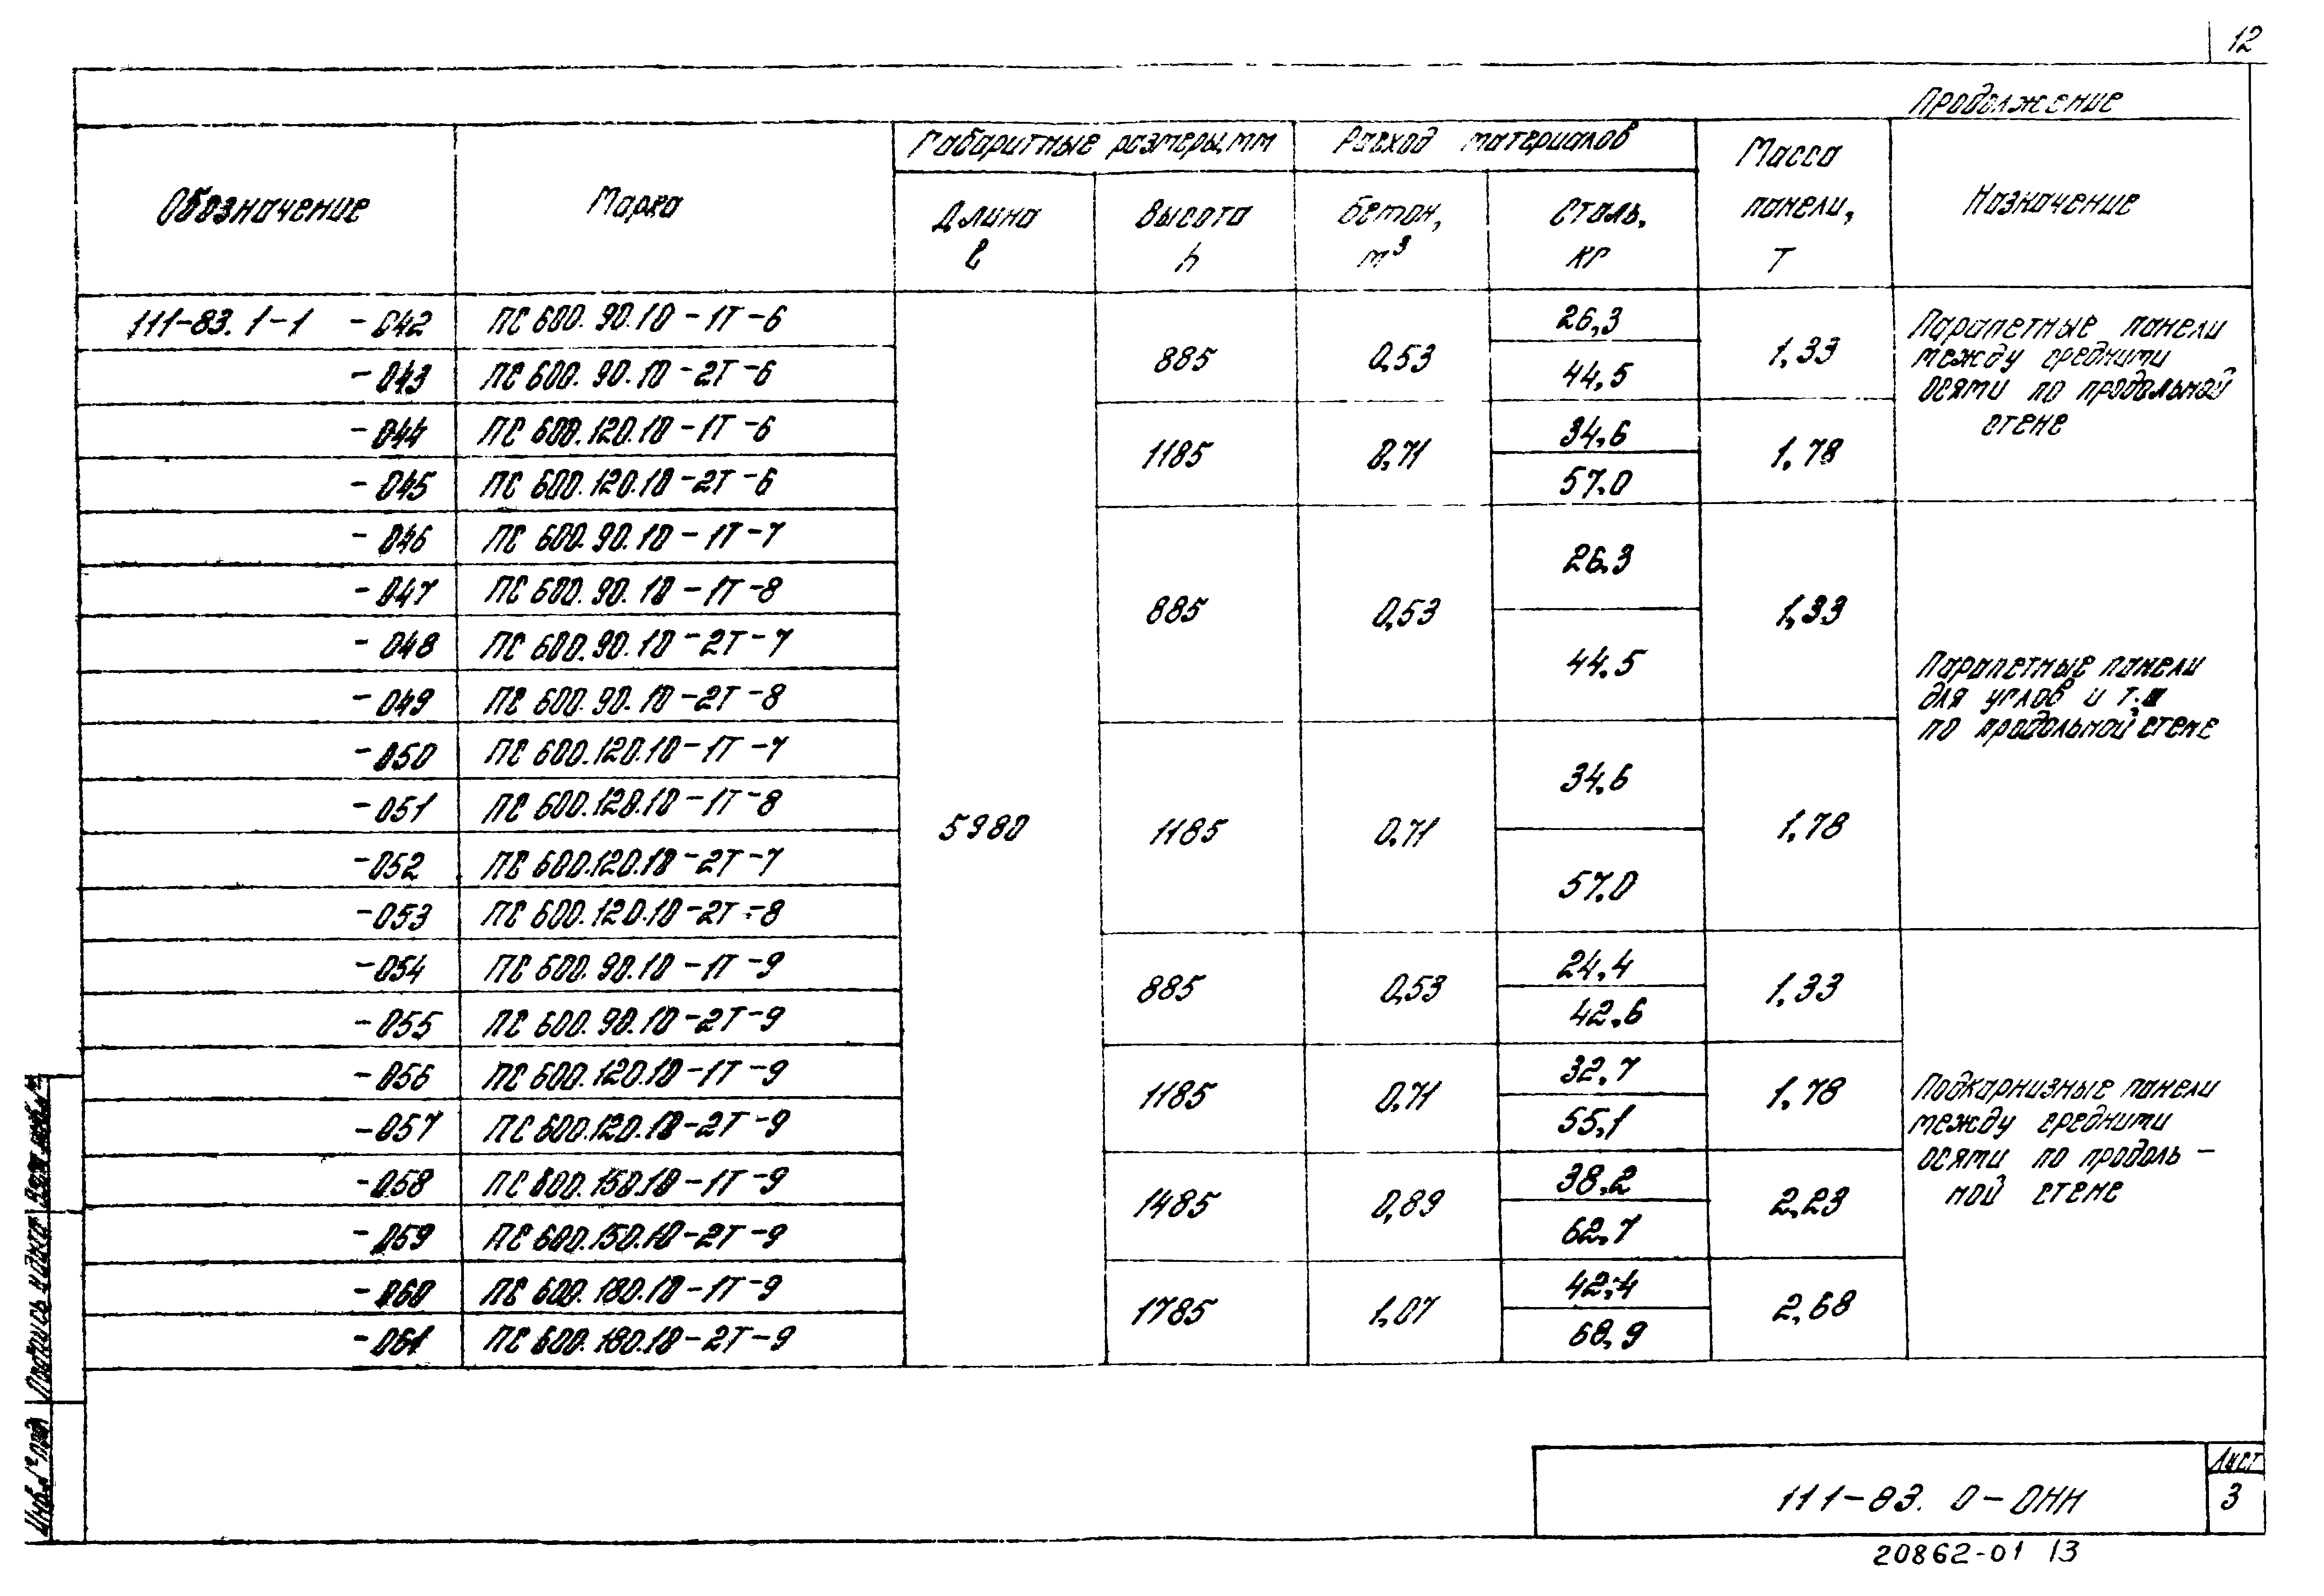 12
Продолжение
Обозначение Марка Габаритные размеры, мм Расход материалов Масса панели, т Назначение
Длина l Высота h Бетон, м³ Сталь, кг
111-83.1-1 -042 ПС 600.90.10-1Т-6 5980 885 0,53 26,3 1,33 Парапетные панели
между средними
осями по продольной
стене
-043 ПС 600.90.10-2Т-6 44,5
-044 ПС 600.120.10-1Т-6 1185 0,71 34,6 1,78
-045 ПС 600.120.10-2Т-6 57.0
-046 ПС 600.90.10-1Т-7 885 0,53 26.3 1,33
-047 ПС 600.90.10-1Т-8
-048 ПС 600.90.10-2Т-7 44.5
-049 ПС 600.90.10-2Т-8
Парапетные панели
для углов и т.ш
по продольной стене
-050 ПС 600.120.10-1Т-7 1185 0,71 34,6 1,78
-051 ПС 600.120.10-1Т-8
-052 ПС 600.120.10-2Т-7 57.0
-053 ПС 600.120.10-2Т-8
-054 ПС 600.90.10-1Т-9 885 0,53 24,4 1,33
-055 ПС 600.90.10-2Т-9 42,6
-056 ПС 600.120.10-1Т-9 1185 0,71 32,7 1,78
-057 ПС 600.120.10-2Т-9 55,1
Подкарнизные панели
между средними
осями по продоль-
ной стене
-058 ПС 600.150.10-1Т-9 1485 0,89 38,2 2,23
-059 ПС 600.150.10-2Т-9 62,7
-060 ПС 600.180.10-1Т-9 1785 1,07 42,4 2,68
-061 ПС 600.180.10-2Т-9 68,9
Инв.№ подл Подпись и дата Взам. инв.№
111-83. 0-0НН
Лист
3
20862-01 13